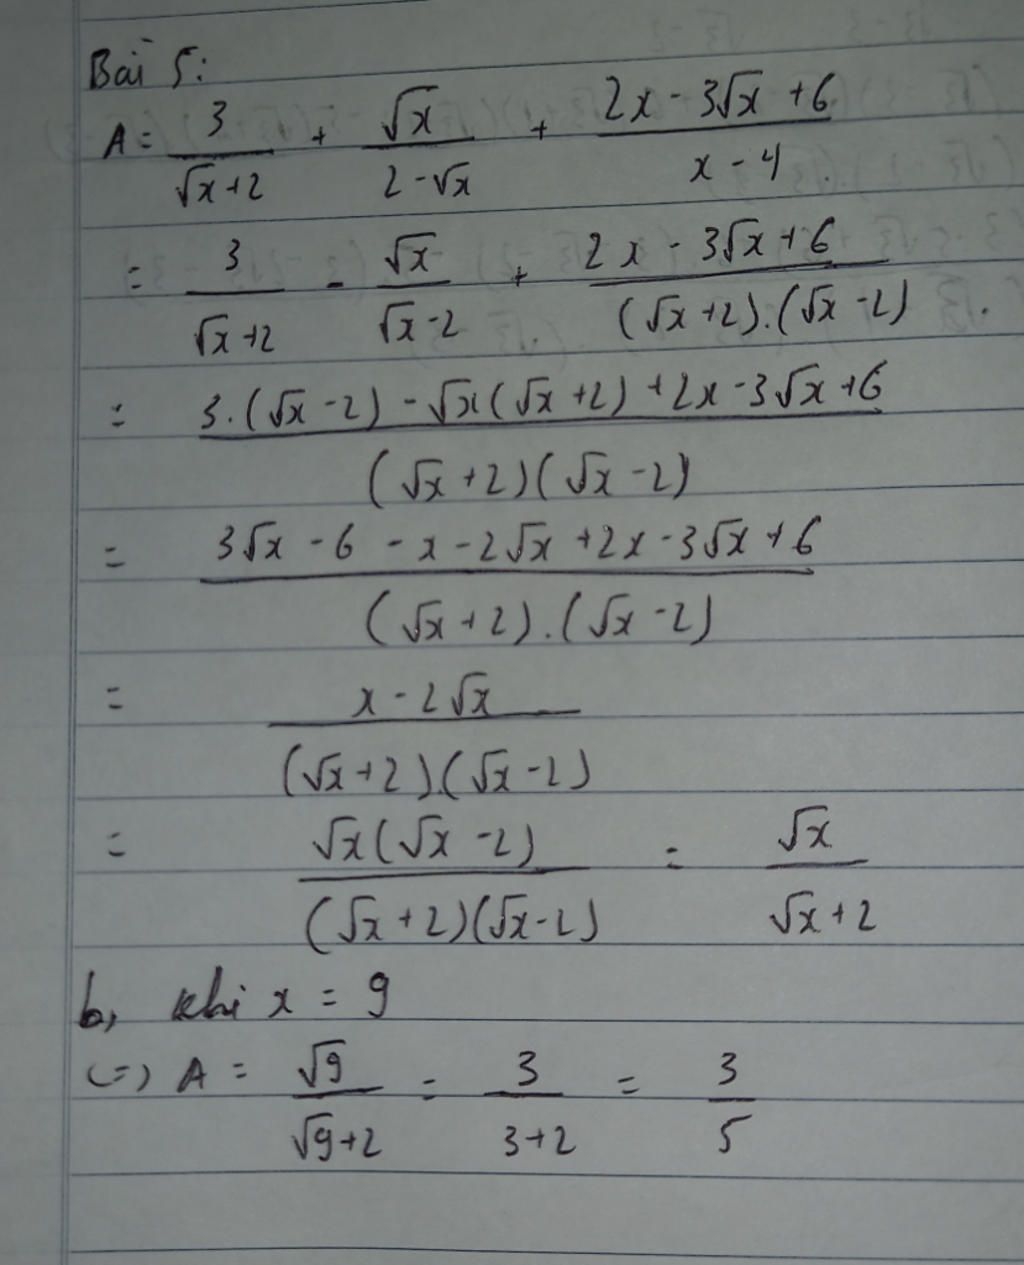 Bài 5:
A = 3/(√x+2) + √x/(2-√x) + (2x-3√x+6)/(x-4).
= 3/(√x+2) - √x/(√x-2) + (2x-3√x+6)/((√x+2).(√x-2)).
= (3.(√x-2)-√x(√x+2)+2x-3√x+6)/((√x+2)(√x-2))
= (3√x-6-x-2√x+2x-3√x+6)/((√x+2).(√x-2))
= (x-2√x)/((√x+2).(√x-2))
= (√x(√x-2))/((√x+2)(√x-2)) = √x/(√x+2)
b, khi x = 9
(=) A = √9/(√9+2) = 3/(3+2) = 3/5